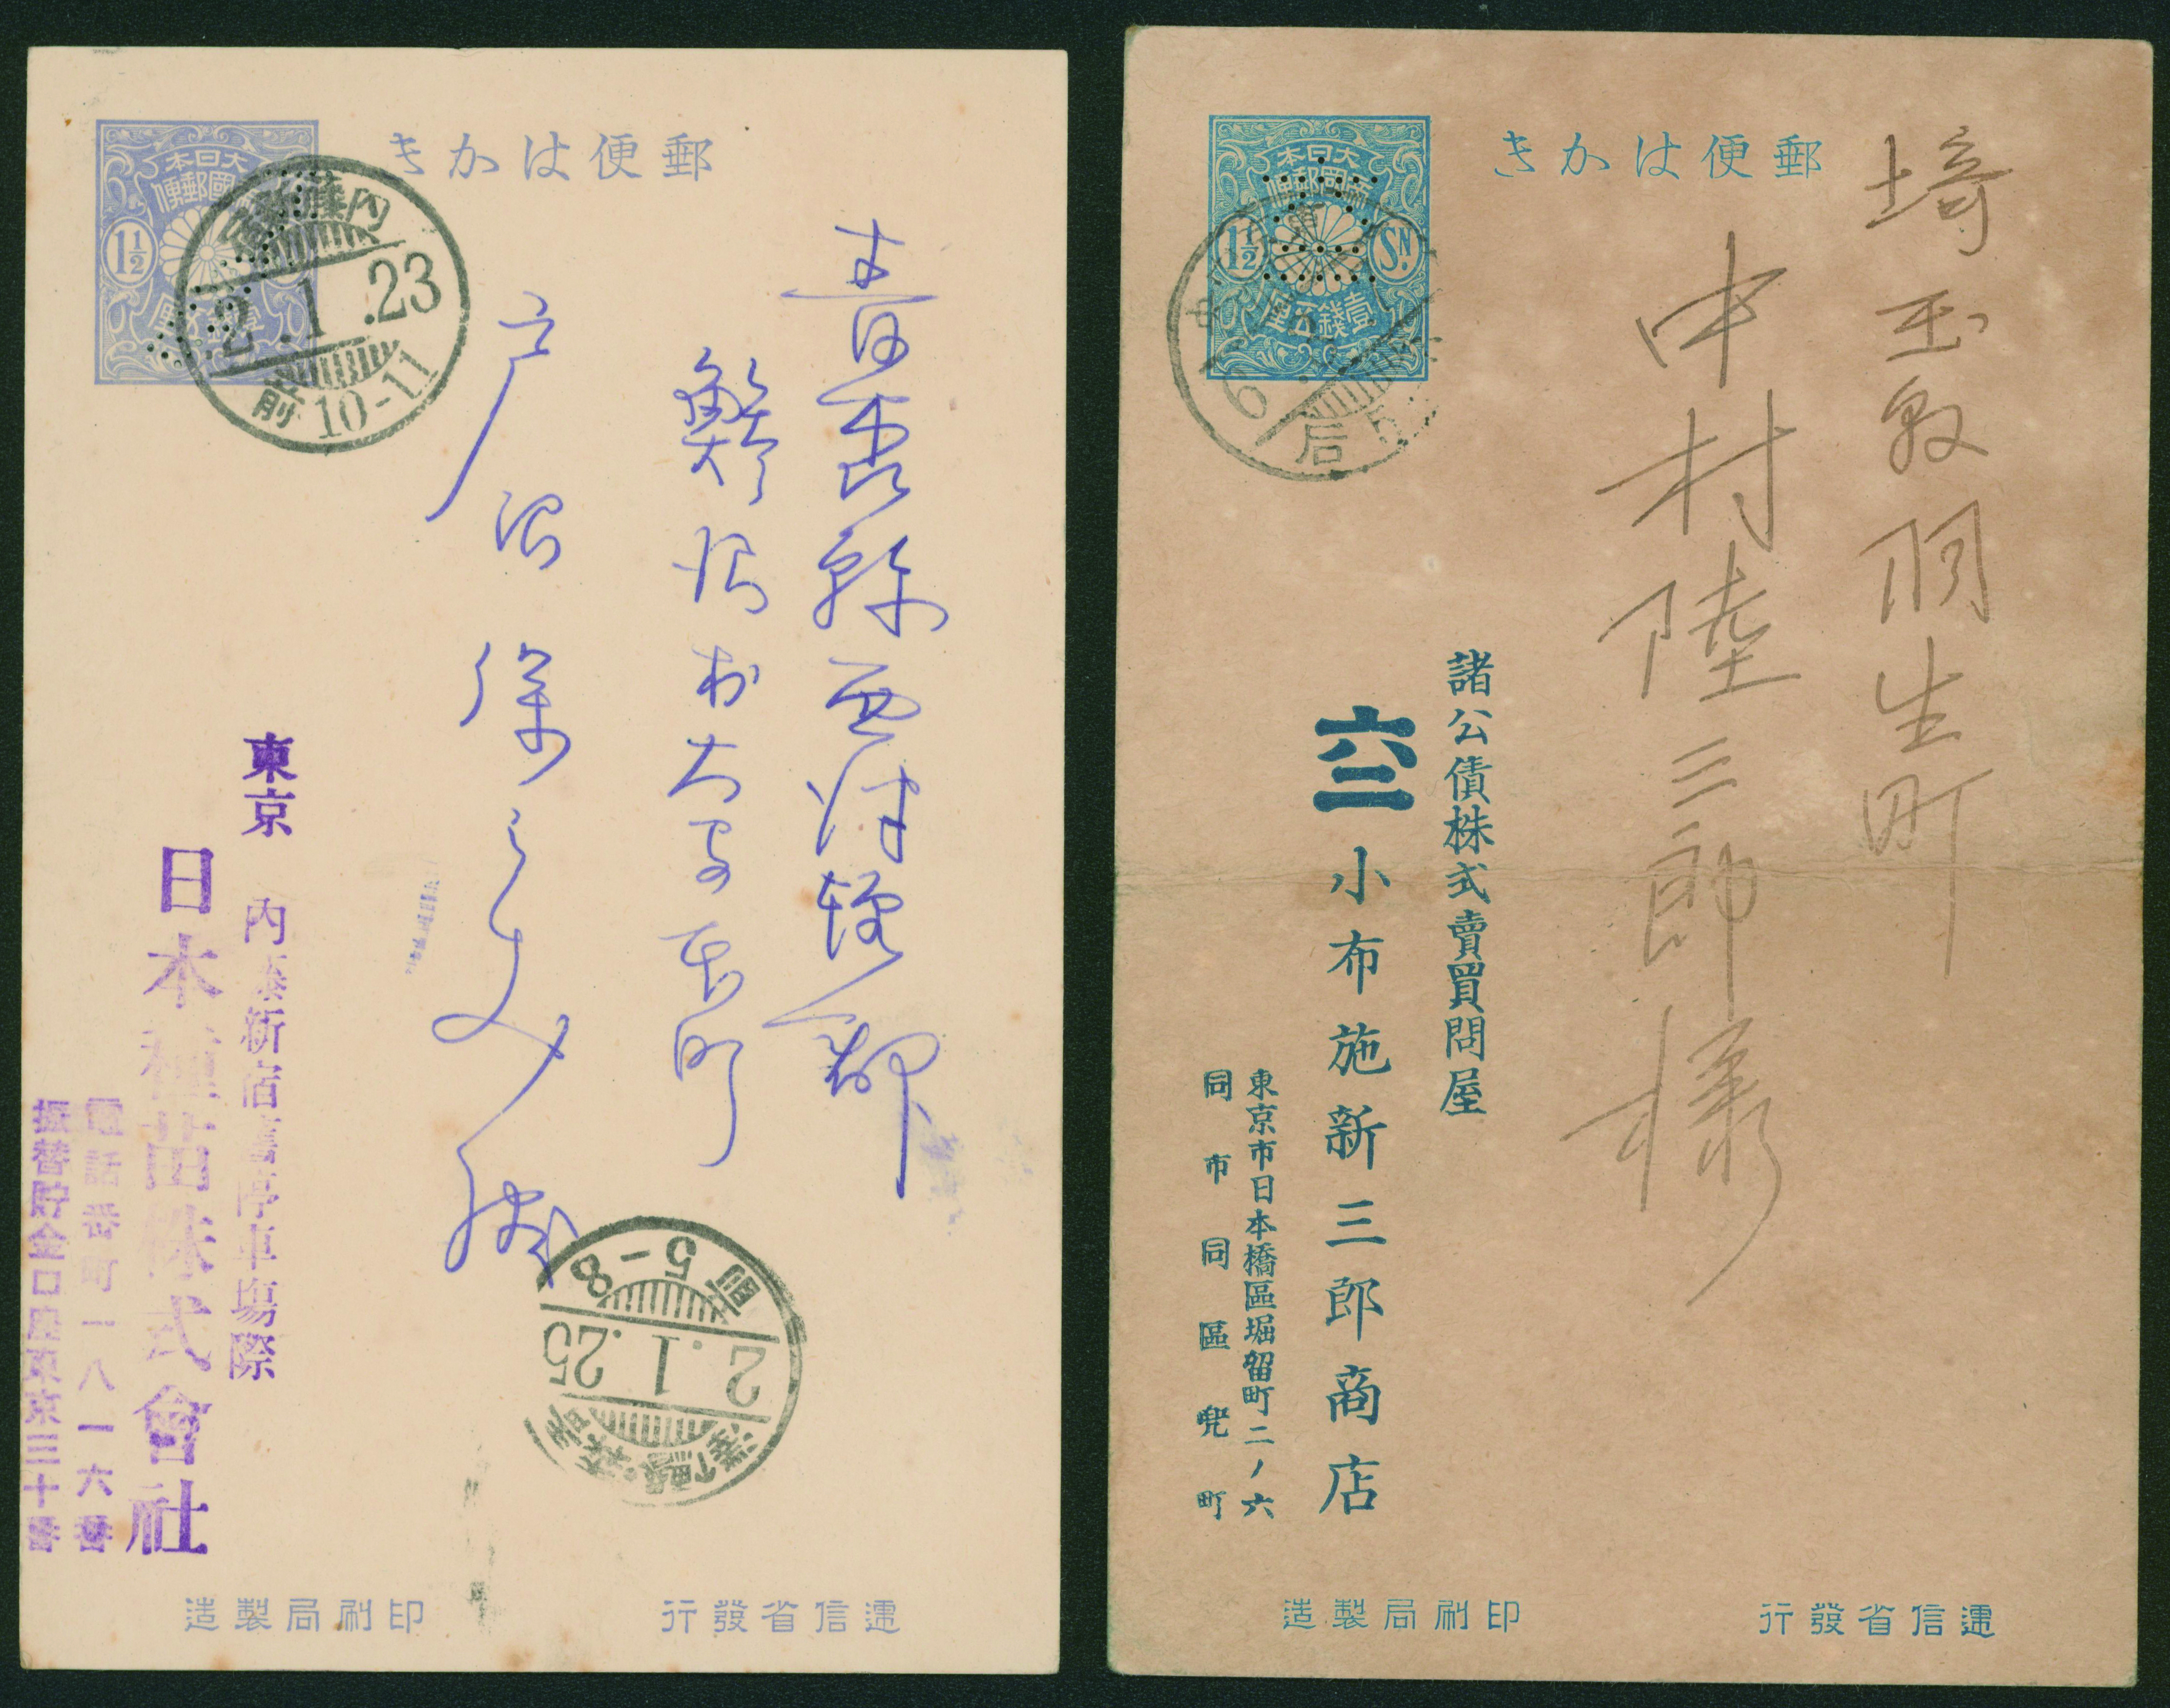 郵便はかき
大日本
帝國郵便
1½
壹錢五厘
内藤新宿
2.1.23
前10-11
青森縣西津軽郡
鰺ヶ沢村大字本町
戸沼
東京 内藤新宿舊停車場際
日本種苗株式會社
電話番町一八一六番
振替貯金口座東京三十番
前5-8
2.1.25
印刷局製造
逓信省發行
郵便はかき
大日本
帝國郵便
1½
SN.
壹錢五厘
后
埼玉縣羽生町
中村陸三郎様
諸公債株式賣買問屋
六二 小布施新三郎商店
東京市日本橋區堀留町二ノ六
同市同區兜町
印刷局製造
逓信省發行